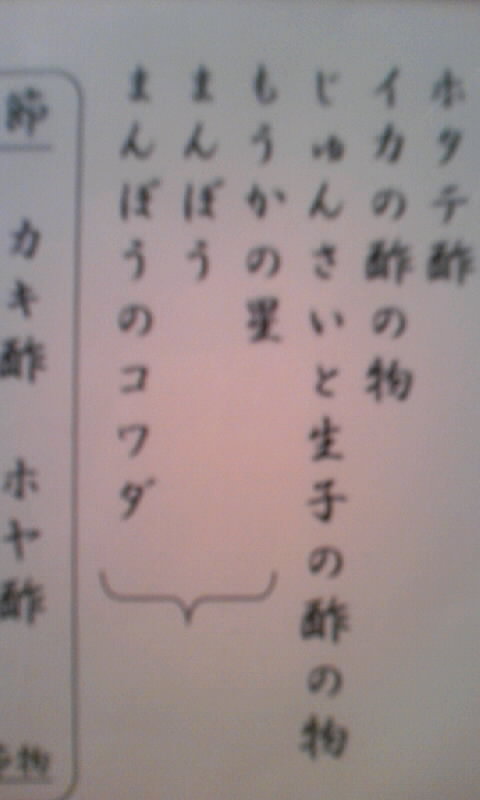 ホタテ酢
イカの酢の物
じゅんさいと生子の酢の物
もうかの星
まんぼう
まんぼうのコワダ
節
カキ酢 ホヤ酢
物